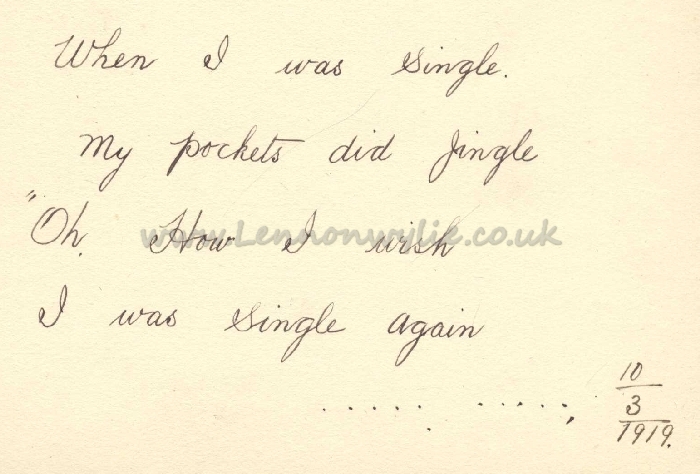 When I was single.
My pockets did Jingle
"Oh. How I wish
www.Lennonwylie.co.uk
I was single again
..... .....,
10
3
1919.